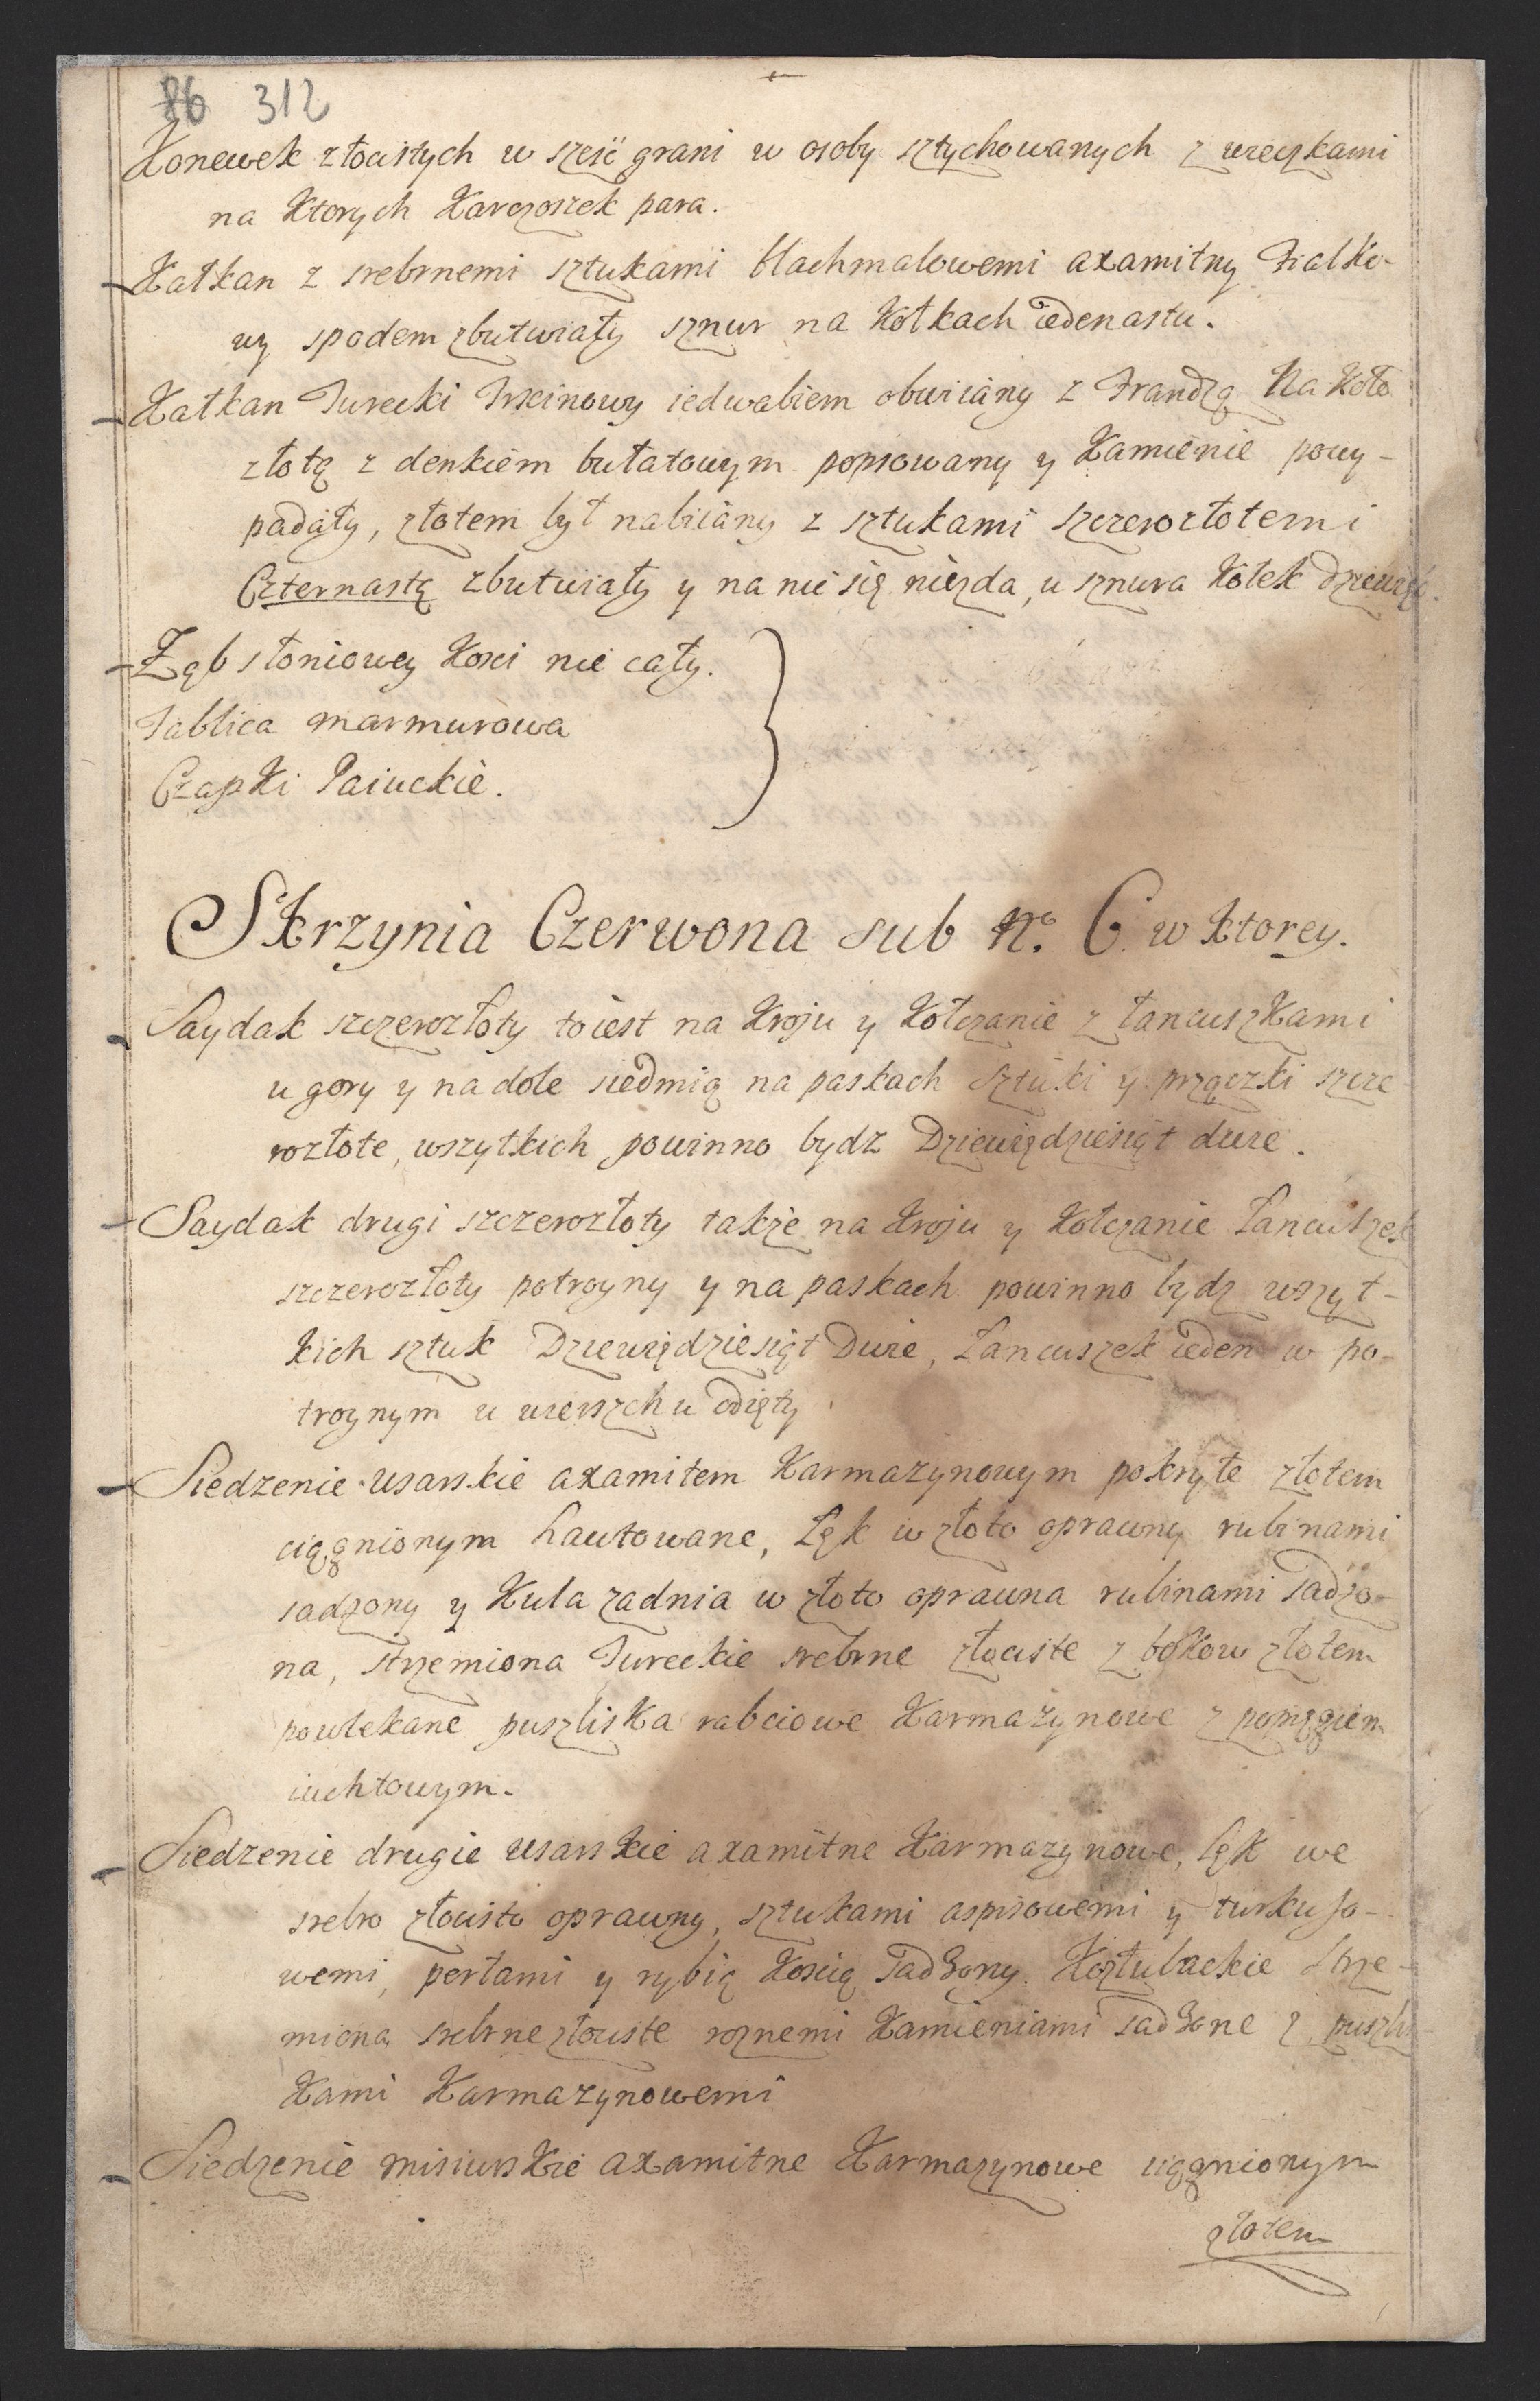 86 312
Konewek złocistych w sześć grani w osoby sztychowanych z wieczkami
na ktorych karczoszek para.
Kałkan z srebrnemi sztukami blachmalowemi axamitny Fialko-
wy spodem zbutwiały sznur na kołkach iedenastu.
Kałkan Turecki trscinowy iedwabiem obwiiany z Frandzą Na koło
złotą z denkiem bułatowym popsowany y kamienie powy-
padały, złotem był nabiiany z sztukami szczerozłotemi
Czternastą zbutwiały y na nic się niezda, u sznura kołek dziewięć.
Ząb słoniowey kosci nie cały.
Tablica marmurowa
Czapki Paiuckie.
Skrzynia Czerwona sub No. 6. w ktorey.
Saydak szczerozłoty toiest na kroju y kołczanie z łancuszkami
u gory y na dole siedmią na paskach sztuki y przączki szcze
rozłote, wszytkich powinno bydz Dziewiędziesiąt dwie.
Saydak drugi szczerozłoty także na kroju y kołczanie Łancuszek
szczerozłoty potroyny y na paskach powinno bydz wszyt-
kich sztuk Dziewiędziesiąt Dwie, Łancuszek ieden w po-
troynym u wierszchu odięty.
Siedzenie usarskie axamitem karmazynowym pokryte złotem
ciągnionym hawtowane, Łęk w złoto oprawny rubinami
sadzony y kula zadnia w złoto oprawna rubinami sadzo-
na, strzemiona Tureckie srebrne złociste z bokow złotem
powlekane puszliska rabciowe karmazynowe z popręgiem
iuchtowym.
Siedzenie drugie usarskie axamitne karmazynowe, łęk we
srebro złocisto oprawny, sztukami aspisowemi y turkuso-
wemi, perłami y rybią kością sadzony. Kozłubackie strze-
miona srebrne złociste roznemi kamieniami sadzone z puszlis
kami karmazynowemi
Siedzenie misiurskie axamitne karmazynowe ciągnionym
złotem